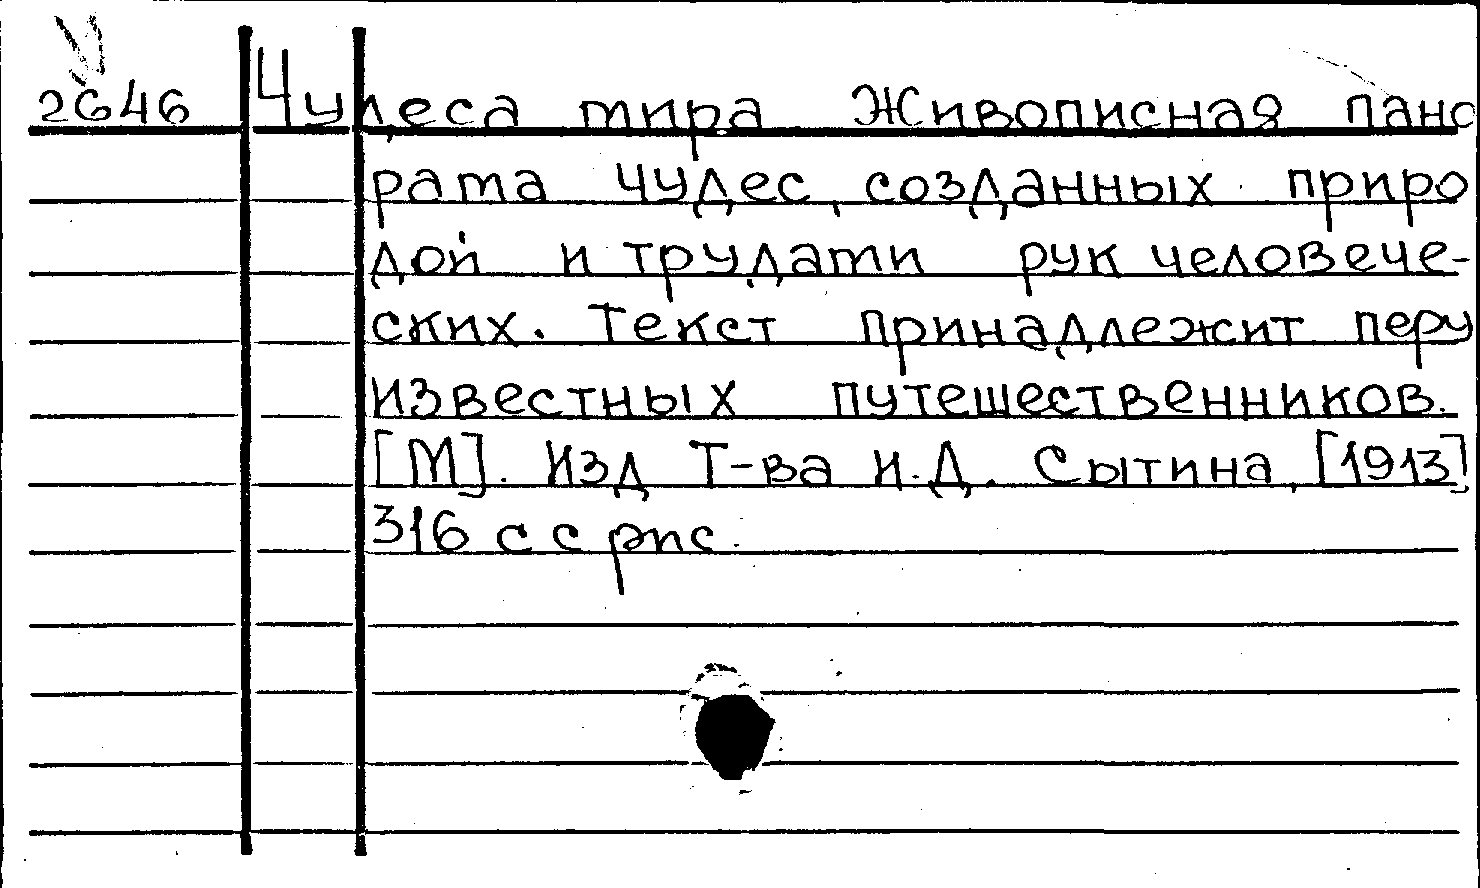 2646 Чудеса мира Живописная пано
рама чудес, созданных приро
дой и трудами рук человече-
ских. Текст принадлежит перу
известных путешественников.
[М]. Изд Т-ва И.Д. Сытина, [1913]
316 с с рис.